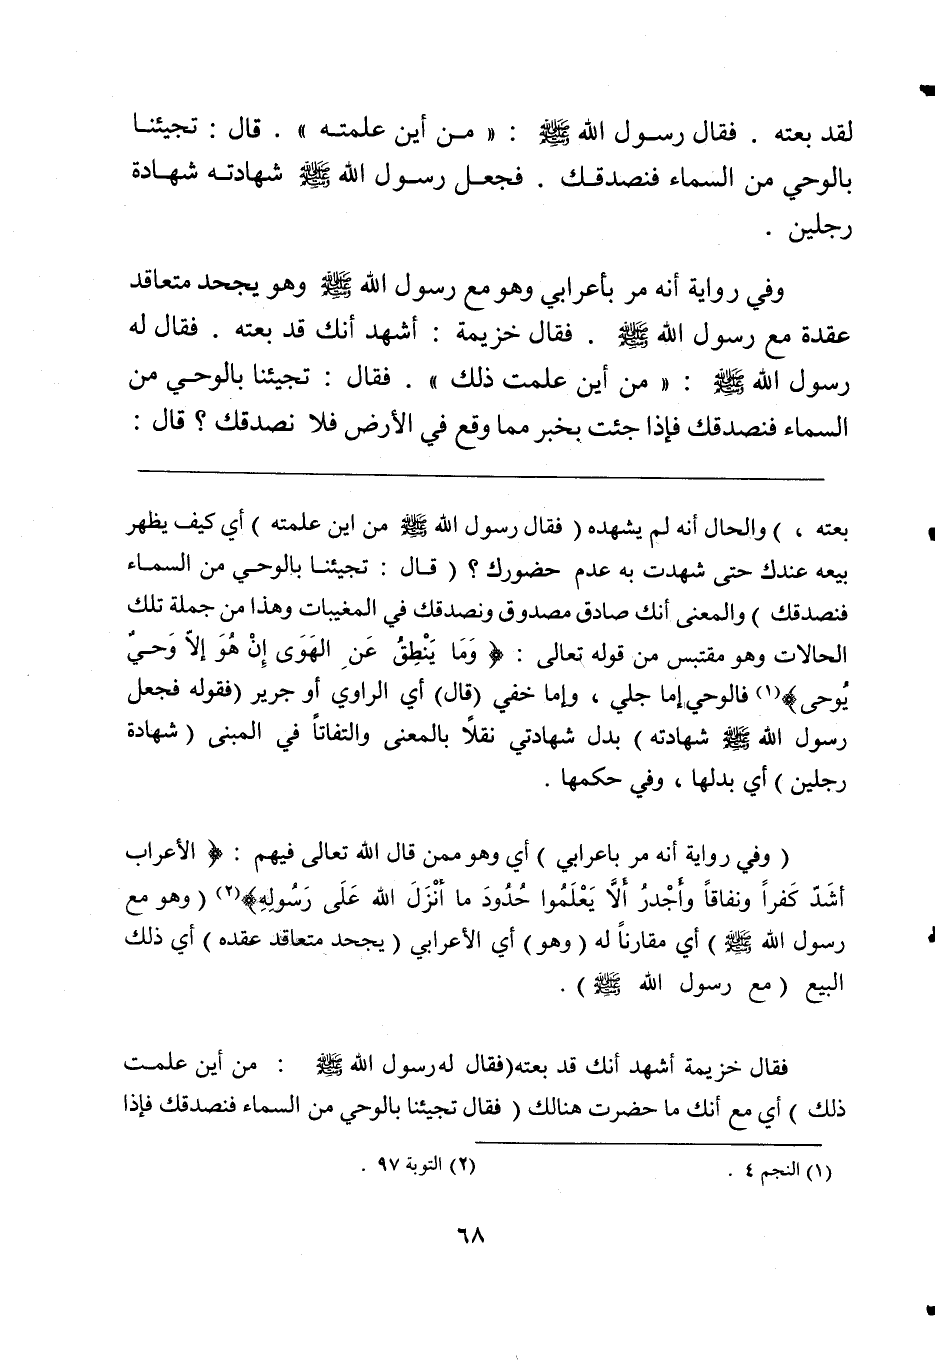 لقد بعته . فقال رسول الله ﷺ : « من أين علمته » . قال : تجيئنا
بالوحي من السماء فنصدقك . فجعل رسول الله ﷺ شهادته شهادة
رجلين .
وفي رواية أنه مر بأعرابي وهو مع رسول الله ﷺ وهو يجحد متعاقد
عقدة مع رسول الله ﷺ . فقال خزيمة : أشهد أنك قد بعته . فقال له
رسول الله ﷺ : « من أين علمت ذلك » . فقال : تجيئنا بالوحي من
السماء فنصدقك فإذا جئت بخبر مما وقع في الأرض فلا نصدقك ؟ قال :
بعته ، ) والحال أنه لم يشهده ( فقال رسول الله ﷺ من اين علمته ) أي كيف يظهر
بيعه عندك حتى شهدت به عدم حضورك ؟ ( قال : تجيئنا بالوحي من السماء
فنصدقك ) والمعنى أنك صادق مصدوق ونصدقك في المغيبات وهذا من جملة تلك
الحالات وهو مقتبس من قوله تعالى : ﴿ وَمَا يَنْطِقُ عَنِ الهَوَى إِنْ هُوَ إلاّ وَحيٌ
يُوحى﴾(١) فالوحي إما جلي ، وإما خفي (قال) أي الراوي أو جرير (فقوله فجعل
رسول الله ﷺ شهادته ) بدل شهادتي نقلاً بالمعنى والتفاتاً في المبنى ( شهادة
رجلين ) أي بدلها ، وفي حكمها .
( وفي رواية أنه مر باعرابي ) أي وهو ممن قال الله تعالى فيهم : ﴿ الأعراب
أشَدّ كَفراً ونفاقاً وأَجْدرُ أَلَّا يَعْلَمُوا حُدُودَ ما أَنْزَلَ الله عَلَى رَسُولِهِ﴾(٢) ( وهو مع
رسول الله ﷺ ) أي مقارناً له ( وهو ) أي الأعرابي ( يجحد متعاقد عقده ) أي ذلك
البيع ( مع رسول الله ﷺ ) .
فقال خزيمة أشهد أنك قد بعته(فقال له رسول الله ﷺ : من أين علمت
ذلك ) أي مع أنك ما حضرت هنالك ( فقال تجيئنا بالوحي من السماء فنصدقك فإذا
(١) النجم ٤ . (٢) التوبة ٩٧ .
٦٨